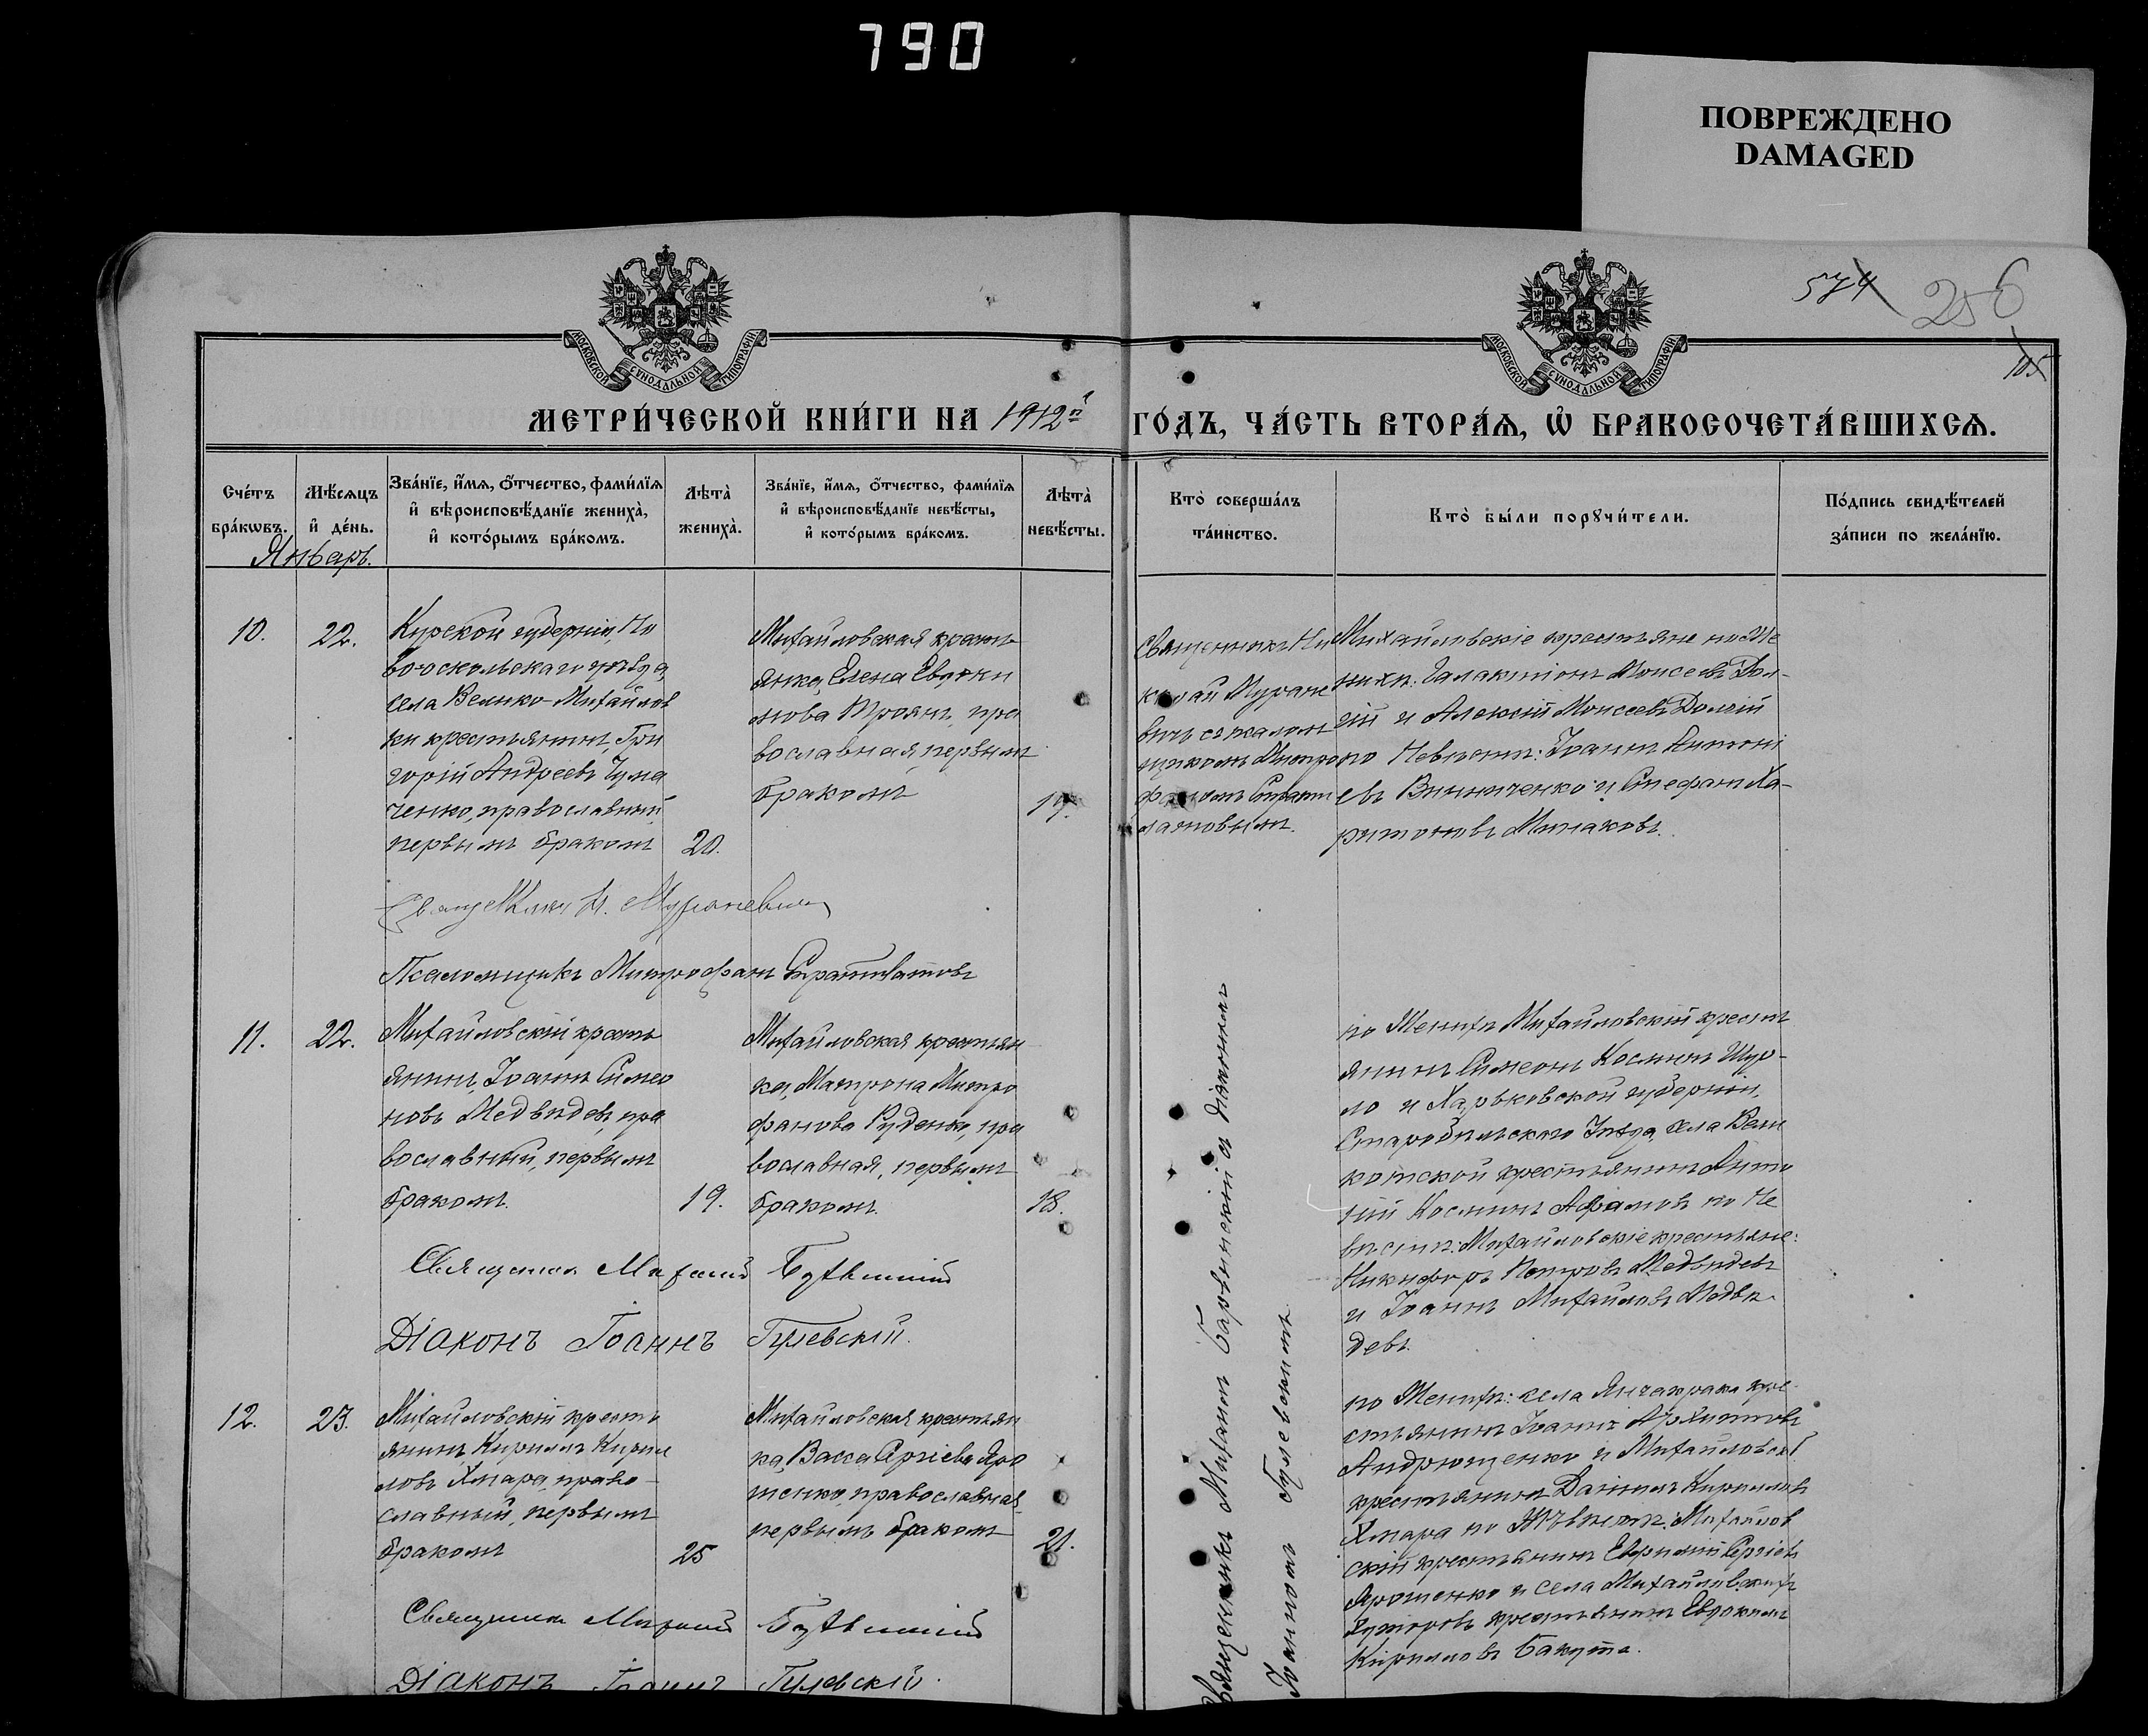 790
ПОВРЕЖДЕНО
DAMAGED
574
256
105
МОСКОВСКОЙ СѴНОДАЛЬНОЙ ТИПОГРАФІИ
МОСКОВСКОЙ СѴНОДАЛЬНОЙ ТИПОГРАФІИ
МЕТРИ́ЧЕСКОЙ КНИ́ГИ НА 1912й
ГО́ДЪ, ЧА́СТЬ ВТОРА́Ѧ, Ѽ БРАКОСОЧЕТА́ВШИХСѦ.
Сче́тъ
бра́кѡвъ.
Мѣ́сѧцъ
и҆ де́нь.
Зва́нїе, и҆́мѧ, ѻ҆́тчество, фами́лїѧ
и҆ вѣроисповѣ́данїе жениха̀,
и҆ кото́рымъ бра́комъ.
Лѣта̀
жениха̀.
Зва́нїе, и҆́мѧ, ѻ҆́тчество, фами́лїѧ
и҆ вѣроисповѣ́данїе невѣ́сты,
и҆ кото́рымъ бра́комъ.
Лѣта̀
невѣ́сты.
Кто̀ соверша́лъ
та́инство.
Кто̀ бы́ли порꙋчи́тели.
По́дпись свидѣ́телей
за́писи по жела́нїю.
Январь.
10.
22.
Курской губерніи, Но
вооскольскаго уѣзда,
села Велико-Михайлов
ки крестьянинъ, Гри
горій Андреевъ Чума
ченко, православный
первымъ бракомъ
20.
Михайловская кресть
янка, Елена Евдоки
мова Троянъ, пра
вославная первымъ
бракомъ
19.
Священникъ Ни
колай Муране
вичъ съ псалом
щикомъ Митро
фаномъ Страти
латовымъ.
Михайловскіе крестьяне по Же
нихѣ: Галактіонъ Моисеевъ Дол-
гій и Алексій Моисеевъ Долгій
по Невѣстѣ: Іоаннъ Антоні
евъ Винниченко и Стефанъ Ха-
ритоновъ Минаковъ.
Священникъ Н. Мураневичъ
Псаломщикъ Митрофанъ Стратилатовъ
11.
22.
Михайловскій кресть
янинъ, Іоаннъ Симео
новъ Медвѣдевъ, пра
вославный, первымъ
бракомъ.
19.
Михайловская крестьян
ка, Матрона Митро
фанова Руденко, пра
вославная, первымъ
бракомъ.
18.
по Женихѣ Михайловскій кресть
янинъ Симеонъ Косминъ Шур-
ло и Харьковской губерніи,
Старобѣльскаго Уѣзда, села Вели
котской крестьянинъ Анто
ній Косминъ по Не
вѣстѣ: Михайловскіе крестьяне:
Никифоръ Петровъ Медвѣдевъ
и Іоаннъ Михайловъ Медвѣ
девъ.
Священникъ Михаилъ
Діаконъ Іоаннъ Гулевскій.
12.
23.
Михайловскій кресть
янинъ Кириллъ Кирил
ловъ Хмара, право-
славный, первымъ
бракомъ
25
Михайловская крестьян
ка, Васса Сергіева Яро
шенко, православная
первымъ бракомъ
21.
Священникъ Михаилъ Барвинскій съ діакономъ
Іоанномъ Гулевскимъ.
по Женихѣ: села Янчакрака кре
стьянинъ Іоаннъ Архиповъ
Андрющенко и Михайловскій
крестьянинъ Даніилъ Кирилловъ
Хмара по Невѣстѣ: Михайлов
скій крестьянинъ Евфимій Сергіевъ
Ярошенко и села Михайловскихъ
Хуторовъ крестьянинъ Евдокимъ
Кирилловъ Бакута.
Священникъ Михаилъ
Діаконъ Іоаннъ Гулевскій.